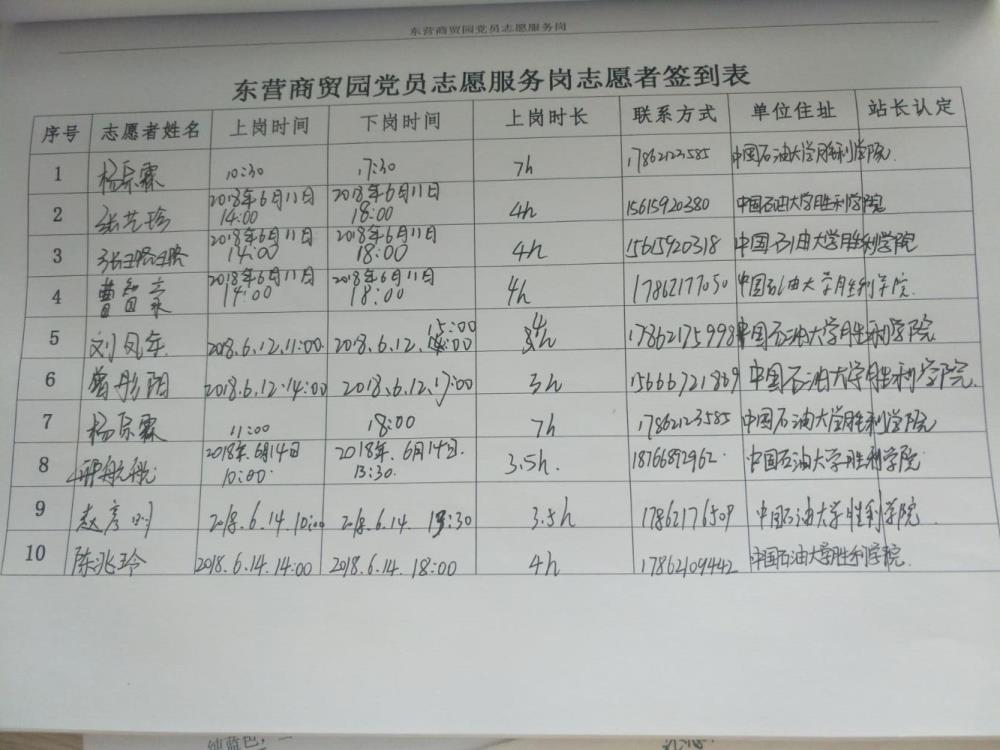 东营商贸园党员志愿服务岗
东营商贸园党员志愿服务岗志愿者签到表
序号 志愿者姓名 上岗时间 下岗时间 上岗时长 联系方式 单位住址 站长认定
1 杨乐霖 10:30 17:30 7h 17862123585 中国石油大学胜利学院
2 张艺珍 2018年6月11日 14:00 2018年6月11日 18:00 4h 15615920380 中国石油大学胜利学院
3 2018年6月11日 14:00 2018年6月11日 18:00 4h 15615920318 中国石油大学胜利学院
4 曹 2018年6月11日 14:00 2018年6月11日 18:00 4h 17862177050 中国石油大学胜利学院
5 刘凤年 2018.6.12.11:00 2018.6.12. 15:00 4h 17862175998 中国石油大学胜利学院
6 曾彤阳 2018.6.12.14:00 2018.6.12.17:00 3h 15666721869 中国石油大学胜利学院
7 杨乐霖 11:00 18:00 7h 17862123585 中国石油大学胜利学院
8 2018年.6月14日 10:00 2018年.6月14日. 13:30 3.5h. 18766892962 中国石油大学胜利学院
9 赵彦 2018.6.14.10:00 2018.6.14. 13:30 3.5h 17862176509 中国石油大学胜利学院
10 陈兆玲 2018.6.14.14:00 2018.6.14. 18:00 4h 17862109442 中国石油大学胜利学院